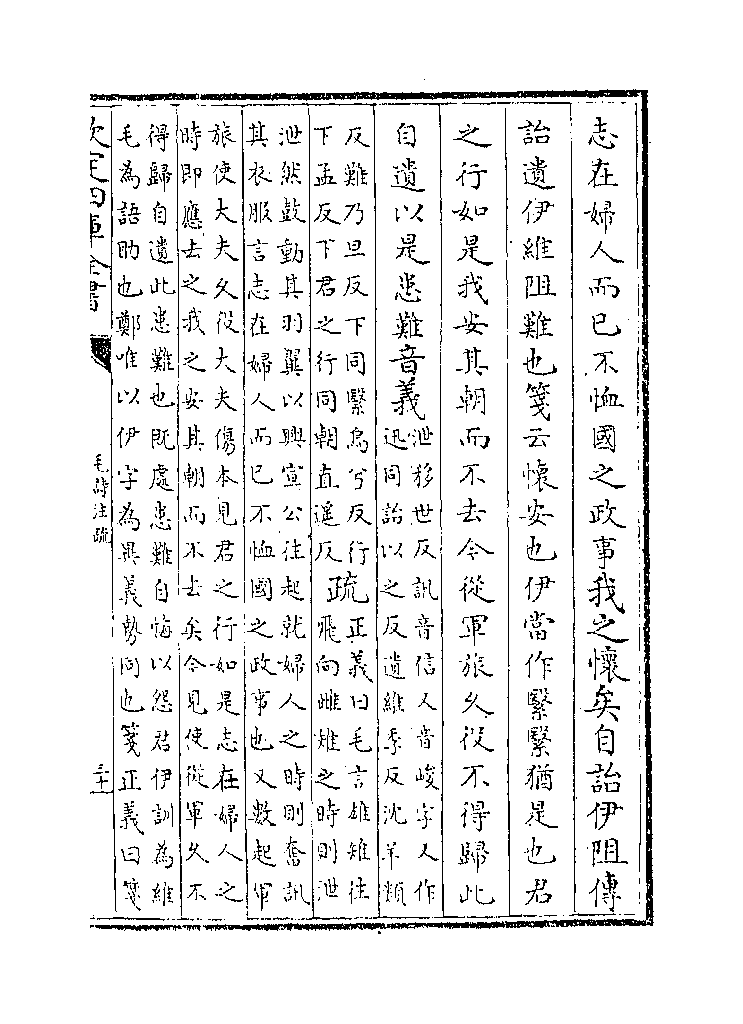 志在婦人而已不恤國之政事我之懷矣自詒伊阻傳
詒遺伊維阻難也箋云懷安也伊當作繄繄猶是也君
之行如是我安其朝而不去今從軍旅久役不得歸此
自遺以是患難音義
泄移世反訊音信又音峻字又作
迅同詒以之反遺維季反沈羊類
反難乃旦反下同繄烏兮反行
下孟反下君之行同朝直遥反
疏
正義曰毛言雄雉往
飛向雌雉之時則泄
泄然鼓動其羽翼以興宣公往起就婦人之時則奮訊
其衣服言志在婦人而已不恤國之政事也又數起軍
旅使大夫久役大夫傷本見君之行如是志在婦人之
時即應去之我之安其朝而不去矣今見使從軍久不
得歸自遺此患難也既處患難自悔以怨君伊訓為維
毛為語助也鄭唯以伊字為異義勢同也箋正義曰箋
欽定四庫全書
毛詩注疏
三十